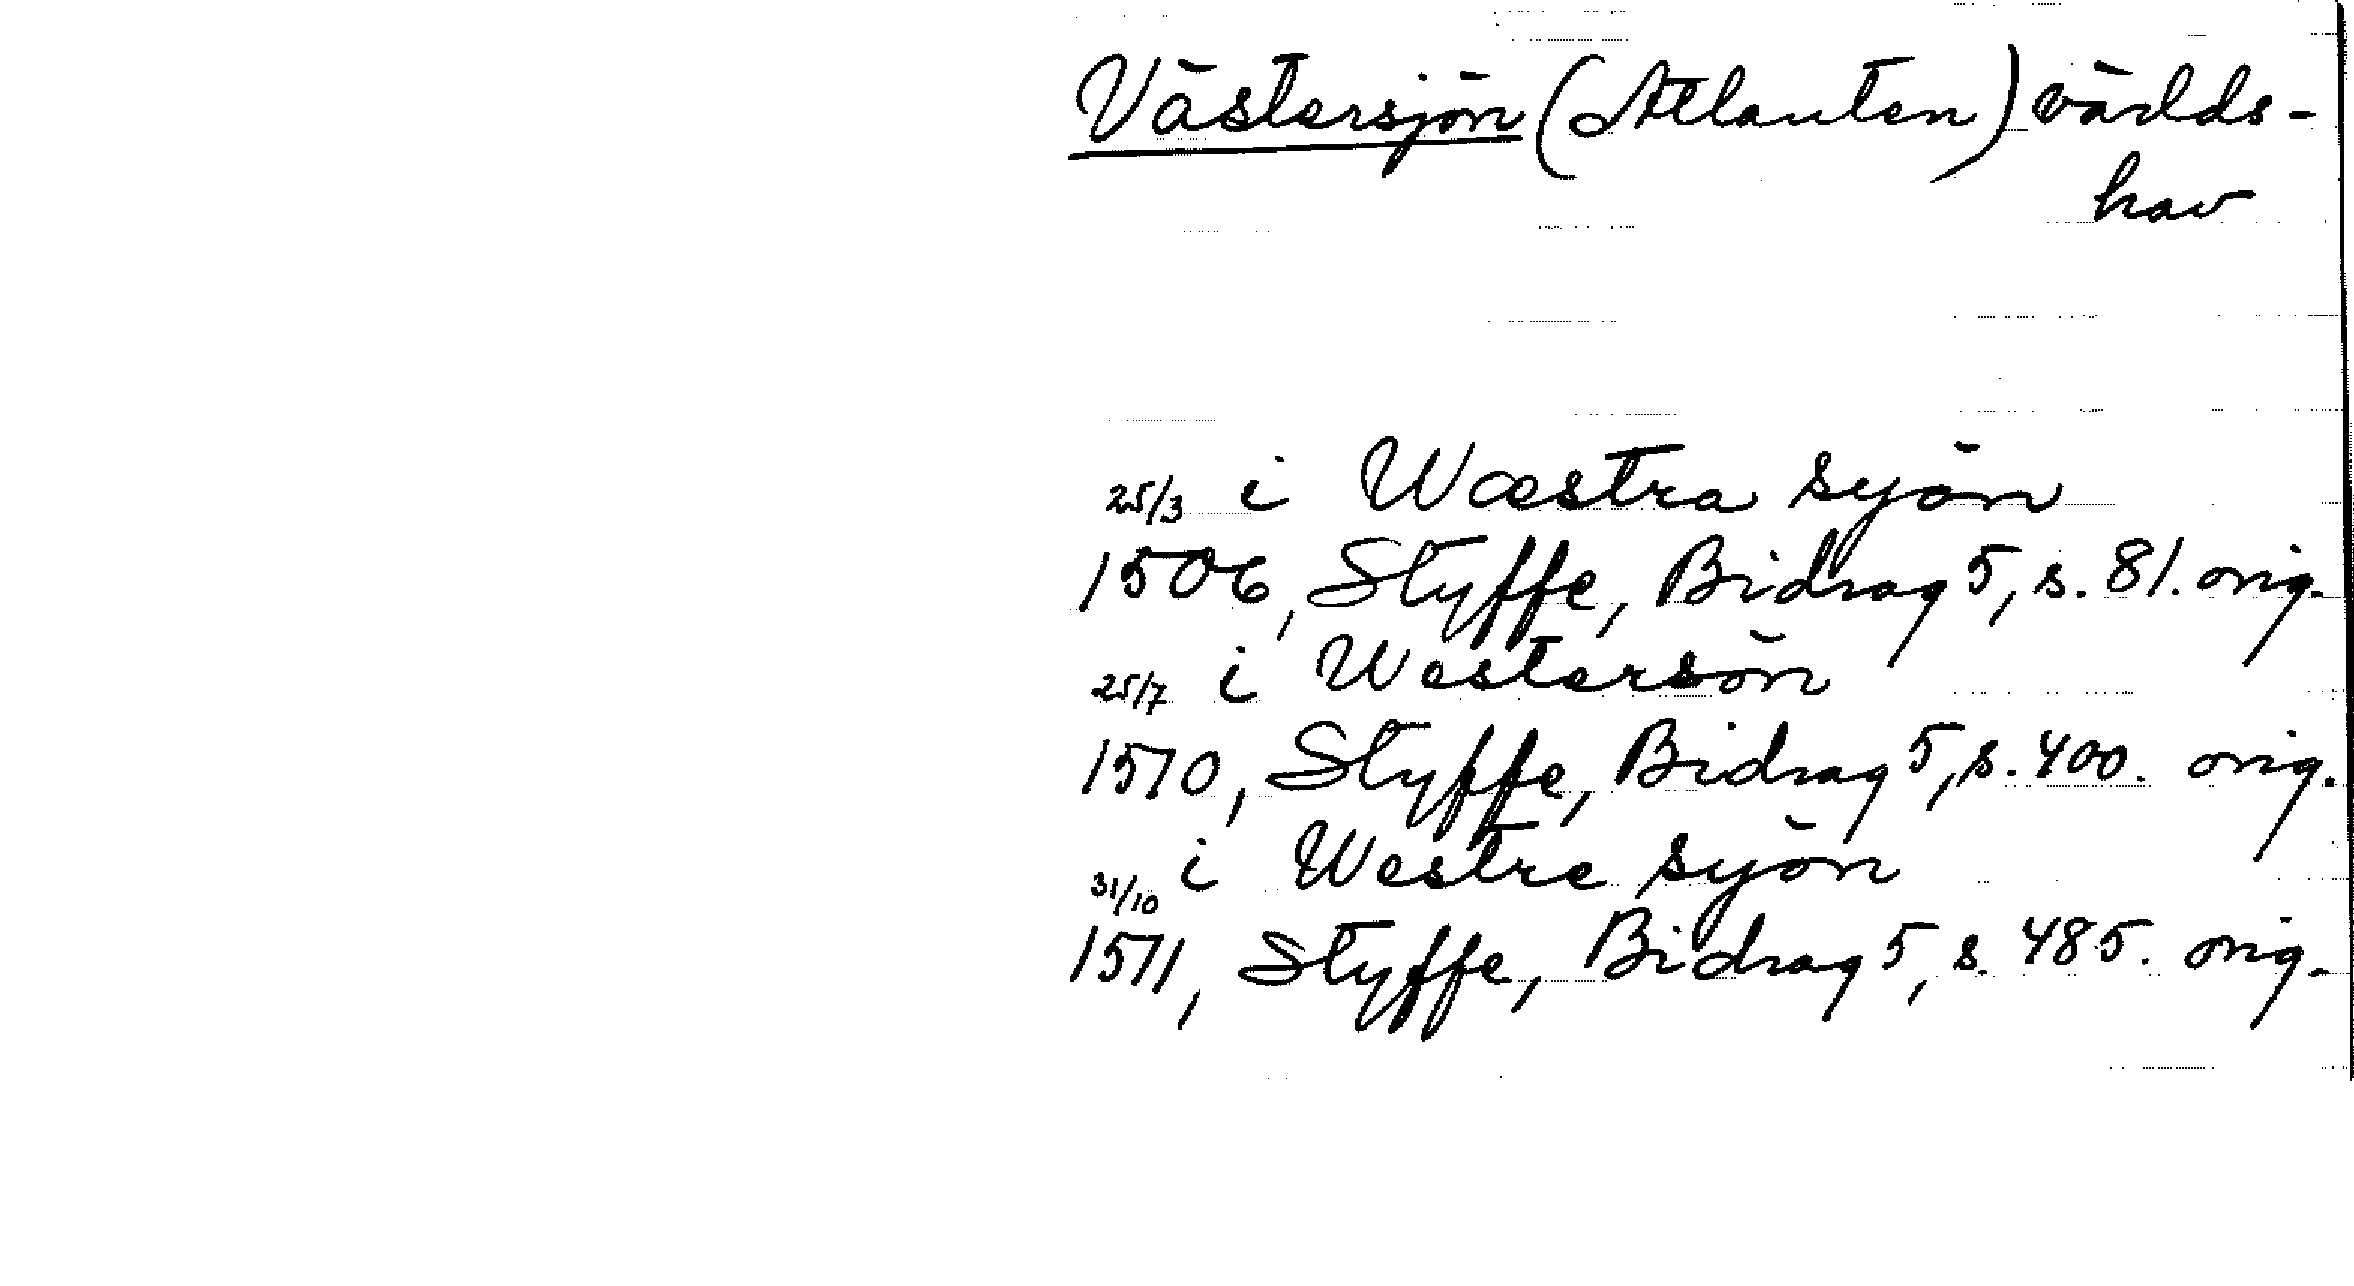 Västersjön (Atlanten) världs-
hav
25/3 i Wæstra syön
1506, Styffe, Bidrag 5, s. 81. orig.
25/7 i Westersön
1510, Styffe, Bidrag 5, s. 400. orig.
31/10 i Westre syön
1511, Styffe, Bidrag 5, s. 485. orig.